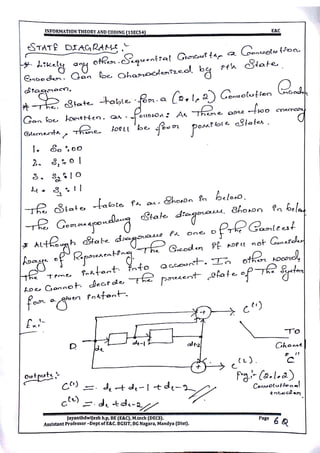 INFORMATION THEORY AND CODING (15EC54) E&C
STATE DIAGRAMS:-
* Likely any other Sequential Circuits, a Convolution
Encoder. Can be Characterized by its State
diagram.
* The State table for a (2,1,2) Convolution Encoder
Can be written as follows: As There are two memory
elements, There will be four possible states.
1. S0:00
2. S1:01
3. S2:10
4. S3:11
The State table is as shown in below.
The Corresponding State diagram shown in below
* Although State diagrams is one of The Easiest
ways of Representing The Encoder it will not Consider
The Time instant into account. In other words,
we Cannot decide The present state of The System
for a given instant.
Ex:-
C(1)
D
dl
dl-1
dl-2
TO
Channel
"C"
C(2)
Fig:- (2,1,2)
Convolutional
encoder
Outputs:-
C(1) = dl + dl-1 + dl-2
C(2) = dl + dl-2
Jayanthdwijesh h.p, BE (E&C), M.tech (DECS). Page 6Q
Assistant Professor -Dept of E&C. BGSIT, BG Nagara, Mandya (Dist).